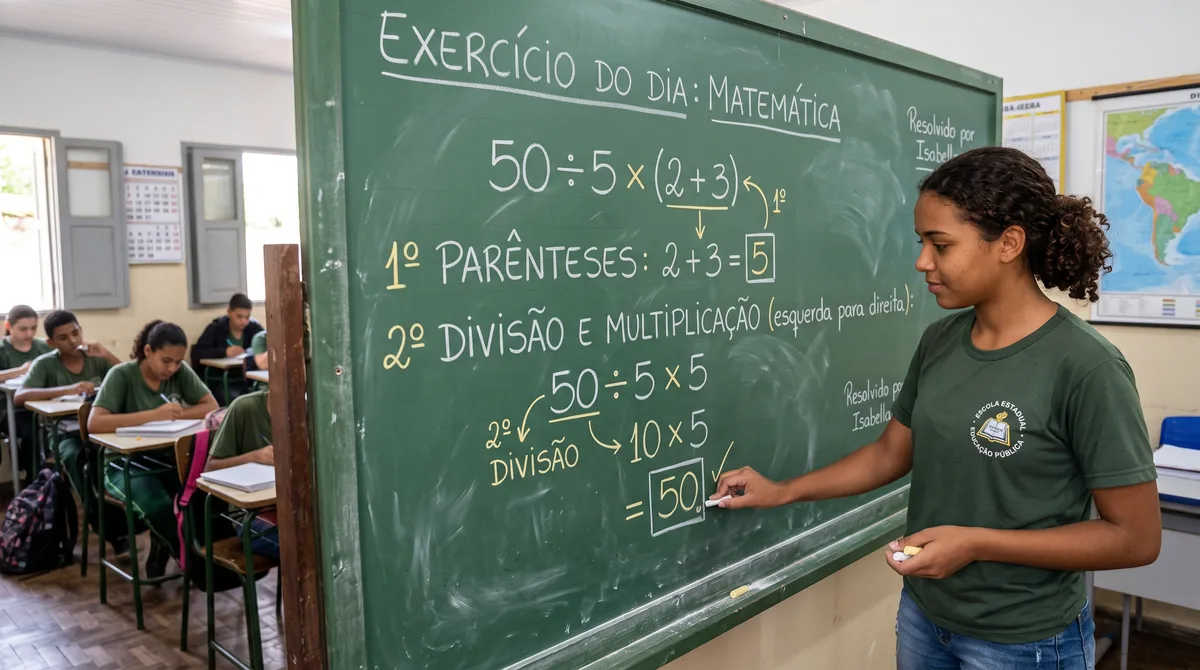 EXERCÍCIO DO DIA: MATEMÁTICA
Resolvido por
Isabella
50 ÷ 5 × (2 + 3)
1º
1º PARÊNTESES: 2 + 3 = 5
2º DIVISÃO E MULTIPLICAÇÃO (esquerda para direita):
50 ÷ 5 × 5
2º
DIVISÃO
10 × 5
= 50.
Resolvido por
Isabella
ESCOLA ESTADUAL
EDUCAÇÃO PÚBLICA